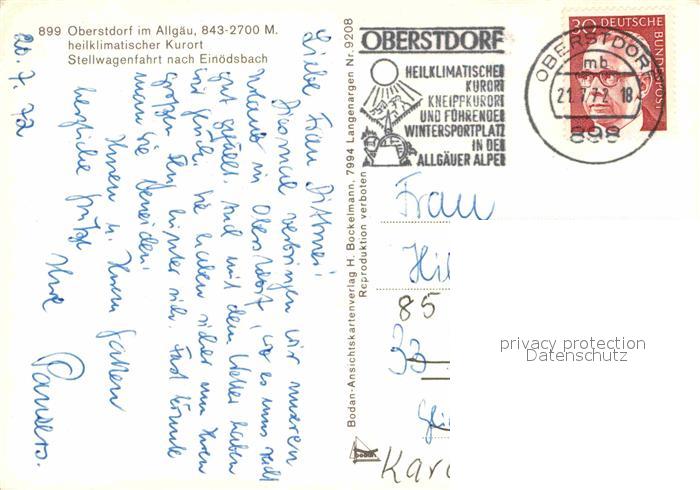 899 Oberstdorf im Allgäu, 843-2700 M.
heilklimatischer Kurort
Stellwagenfahrt nach Einödsbach
20.7.72
Liebe Frau
Diesmal verbringen wir unseren
Urlaub in Oberstdorf, wo es uns recht
gut gefällt. Auch mit dem Wetter haben
wir Glück. Sie haben sicher nun Ihren
großen Tag hinter sich. Fast könnte
man Sie beneiden!
Ihnen u. Ihrem Gatten
herzliche Grüße
Ihre
Bodan-Ansichtskartenverlag H. Bockelmann, 7994 Langenargen Nr. 9208
Reproduktion verboten
OBERSTDORF
HEILKLIMATISCHER
KURORT
KNEIPPKURORT
UND FÜHRENDER
WINTERSPORTPLATZ
IN DEN
ALLGÄUER ALPEN
OBERSTDORF
mb
21.7.72 18
898
30 DEUTSCHE
BUNDESPOST
Frau
Hil
85
33
Kar
privacy protection
Datenschutz